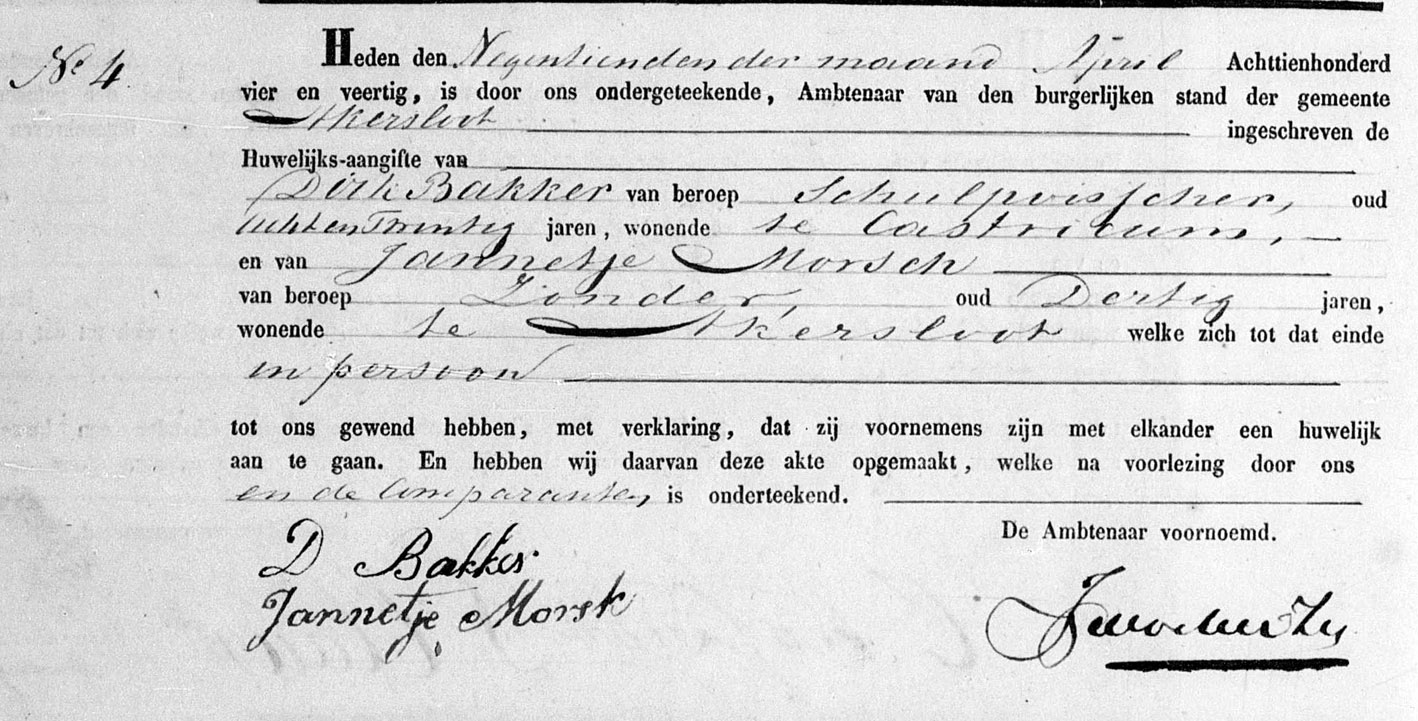 No 4
Heden den Negentienden der maand April Achttienhonderd
vier en veertig, is door ons ondergeteekende, Ambtenaar van den burgerlijken stand der gemeente
Akersloot ingeschreven de
Huwelijks-aangifte van
Dirk Bakker van beroep Schulpvisscher, oud
achtenTwintig jaren, wonende te Castricum,
en van Jannetje Morsch
van beroep Zonder, oud Dertig jaren,
wonende te Akersloot welke zich tot dat einde
in persoon
tot ons gewend hebben, met verklaring, dat zij voornemens zijn met elkander een huwelijk
aan te gaan. En hebben wij daarvan deze akte opgemaakt, welke na voorlezing door ons
en de Comparanten is onderteekend.
De Ambtenaar voornoemd.
D Bakker
Jannetje Morsk